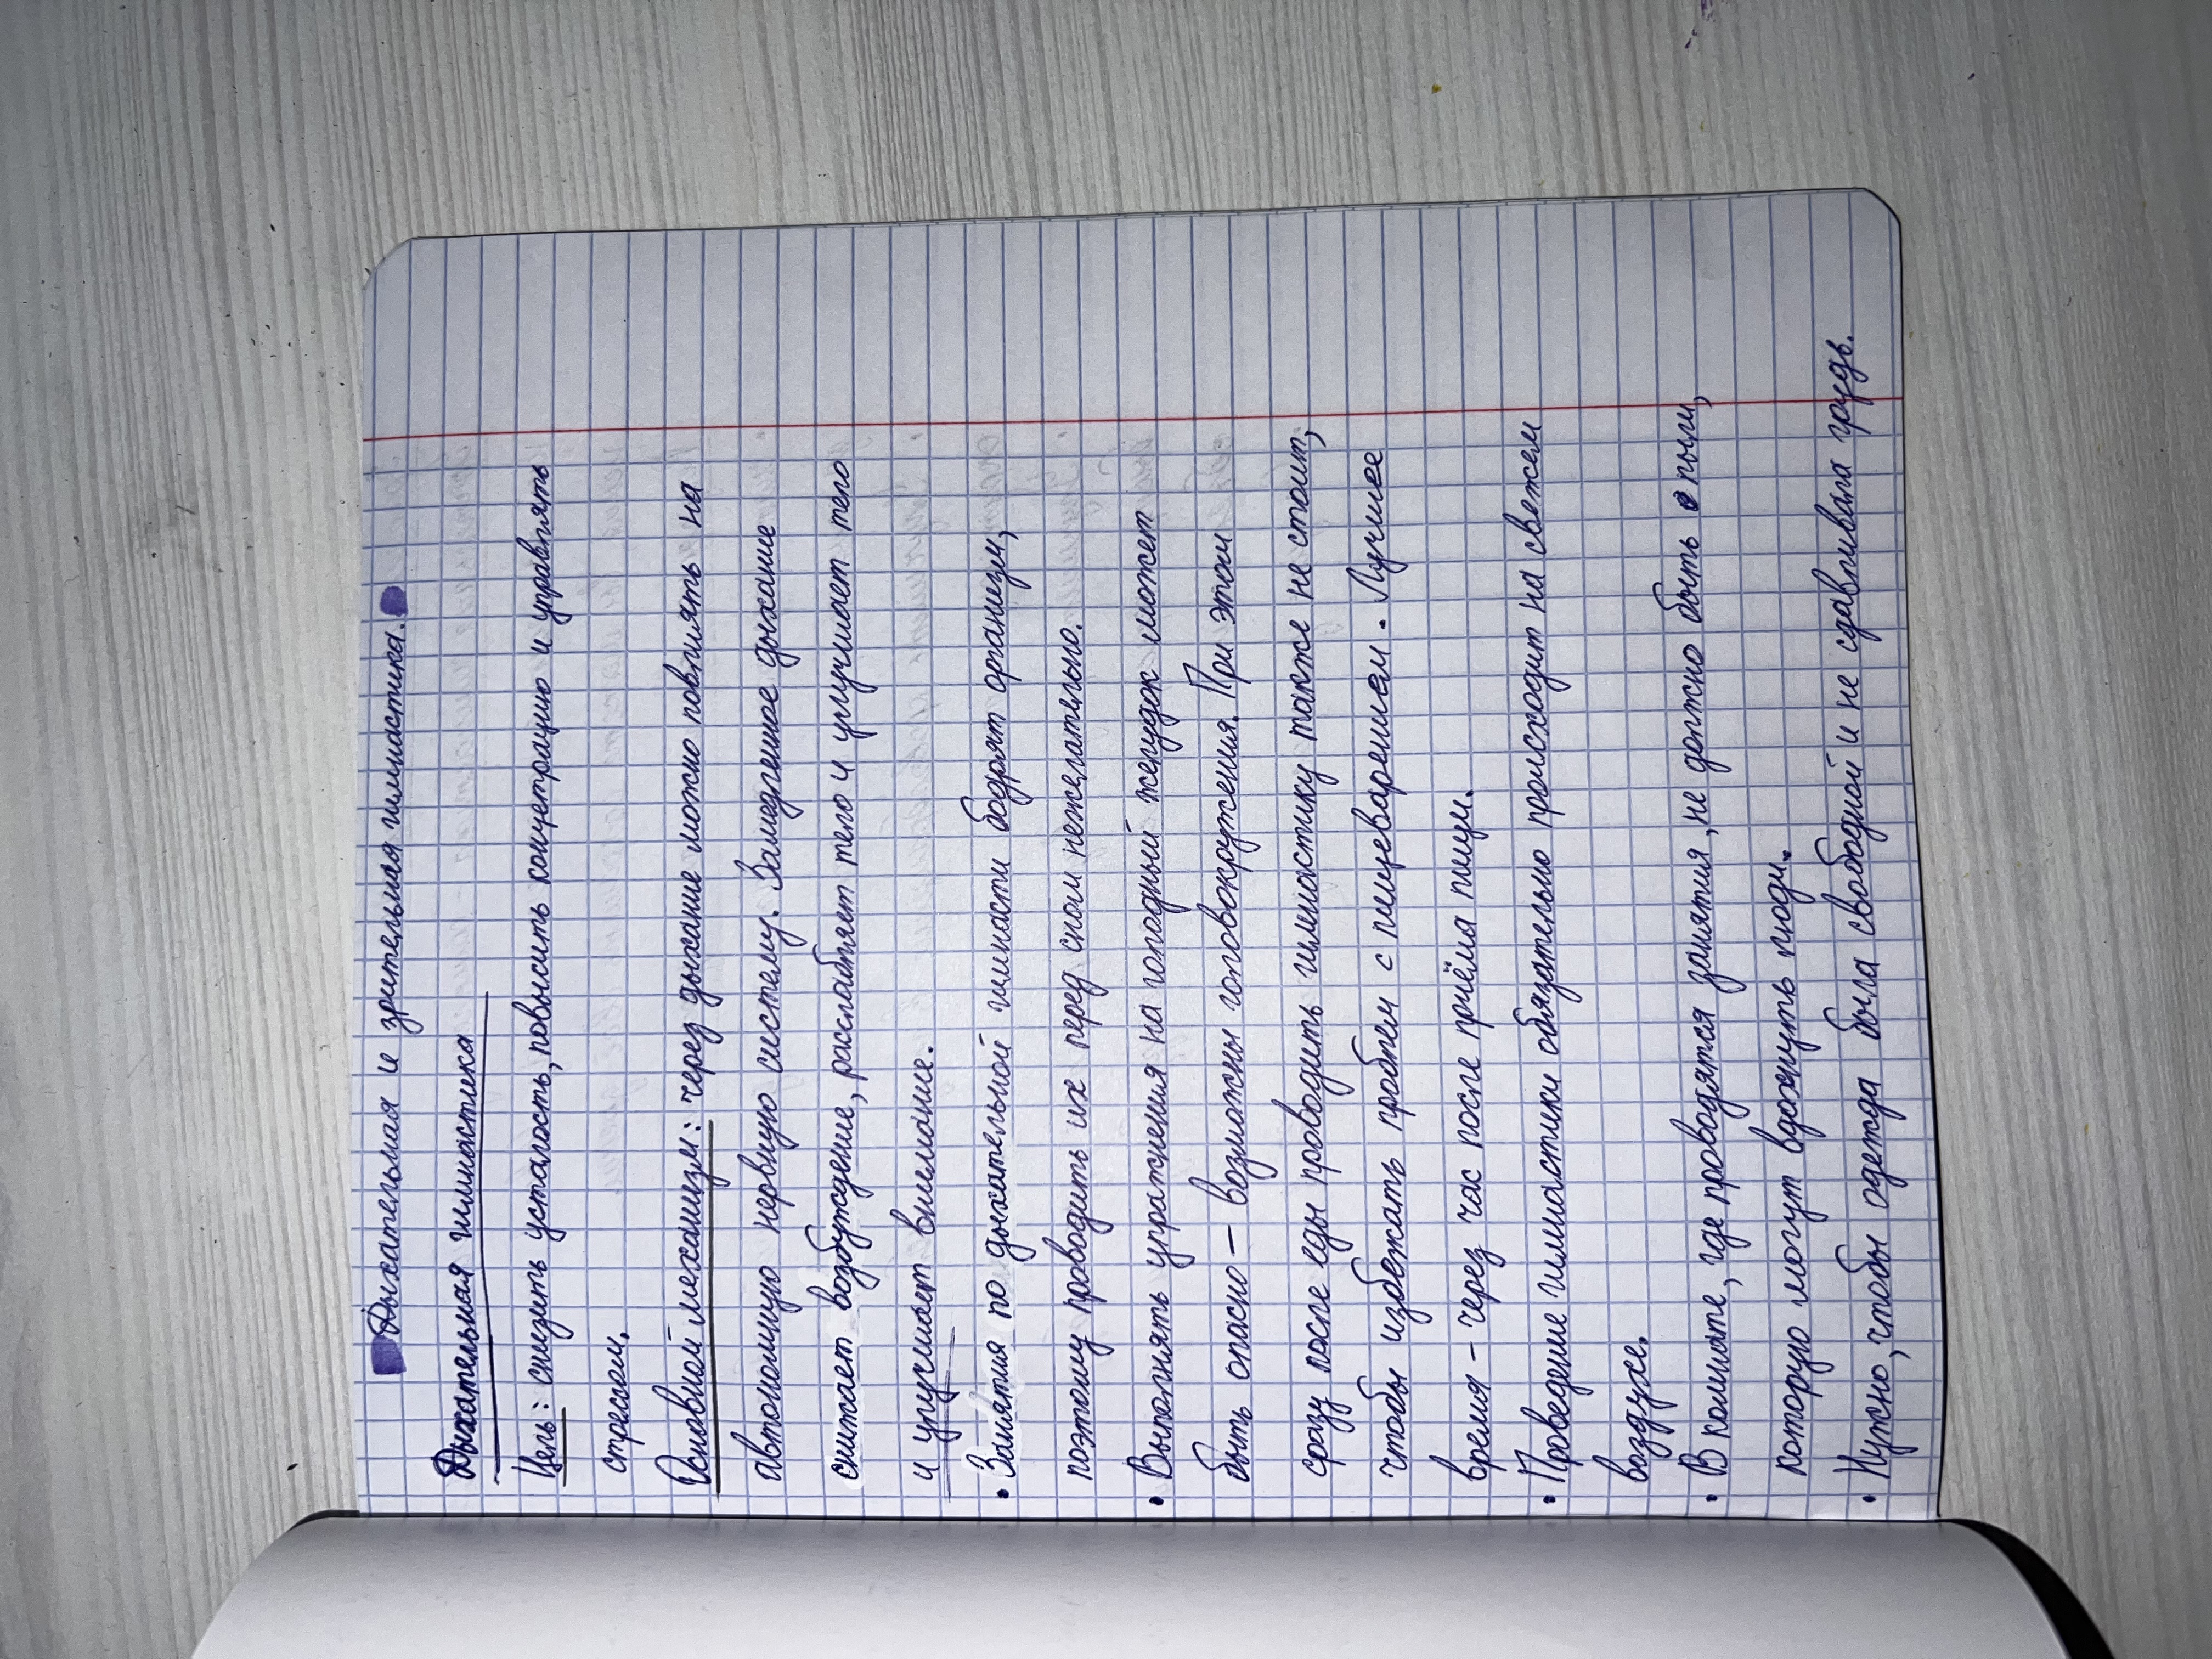 Дыхательная и зрительная гимнастика.
Дыхательная гимнастика
Цель: снизить усталость, повысить концетрацию и управлять
стрессом.
Основной механизм: через дыхание можно повлиять на
автономную нервную систему. Замедленное дыхание
снижает возбуждение, расслабляет тело и улучшает тело
и улучшает внимание.
• Занятия по дыхательной гимнасти бодрят организм,
поэтому проводить их перед сном нежелательно.
• Выполнять упражнения на голодный желудок может
быть опасно – возможны головокружения. При этом
сразу после еды проводить гимнастику также не стоит,
чтобы избежать проблем с пищеварением. Лучшее
время – через час после приёма пищи.
• Проведение гимнастики обязательно происходит на свежем
воздухе.
• В комнате, где проводятся занятия, не должно быть пыли,
которую могут вдохнуть люди.
• Нужно, чтобы одежда была свободной и не сдавливала грудь.